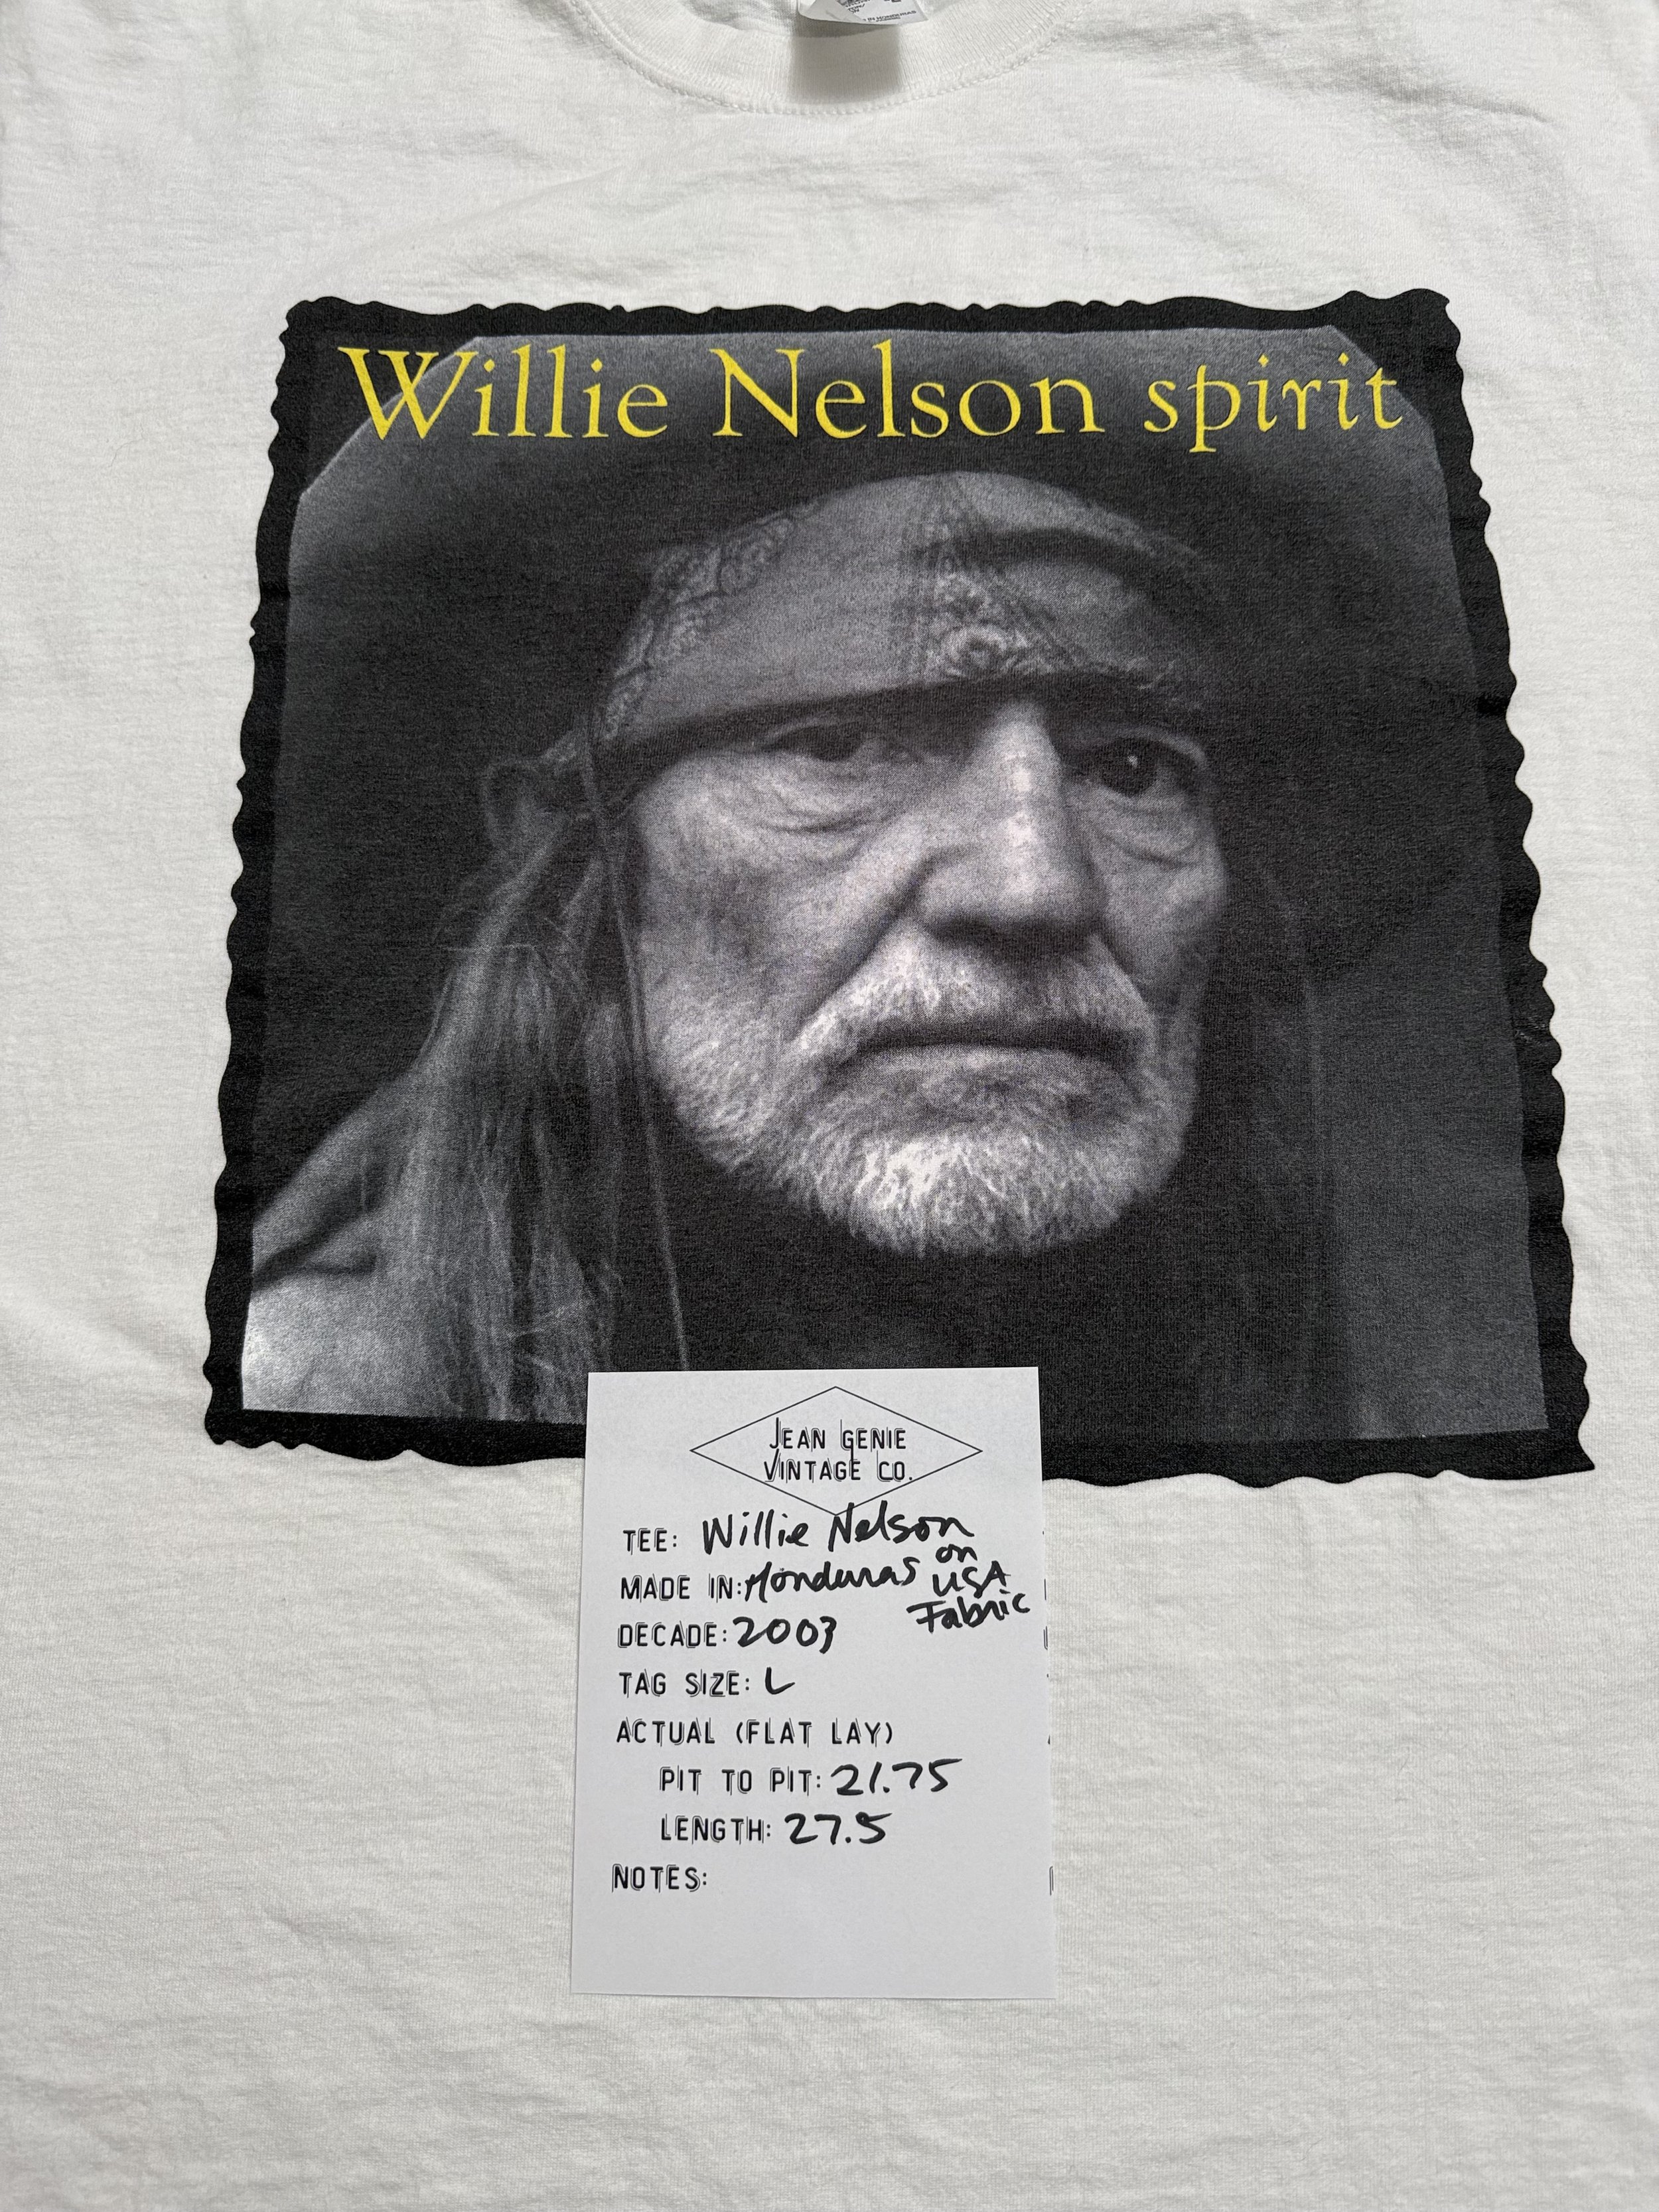 Willie Nelson spirit
JEAN GENIE
VINTAGE CO.
TEE: Willie Nelson
MADE IN: Honduras on USA Fabric
DECADE: 2003
TAG SIZE: L
ACTUAL (FLAT LAY)
PIT TO PIT: 21.75
LENGTH: 27.5
NOTES: